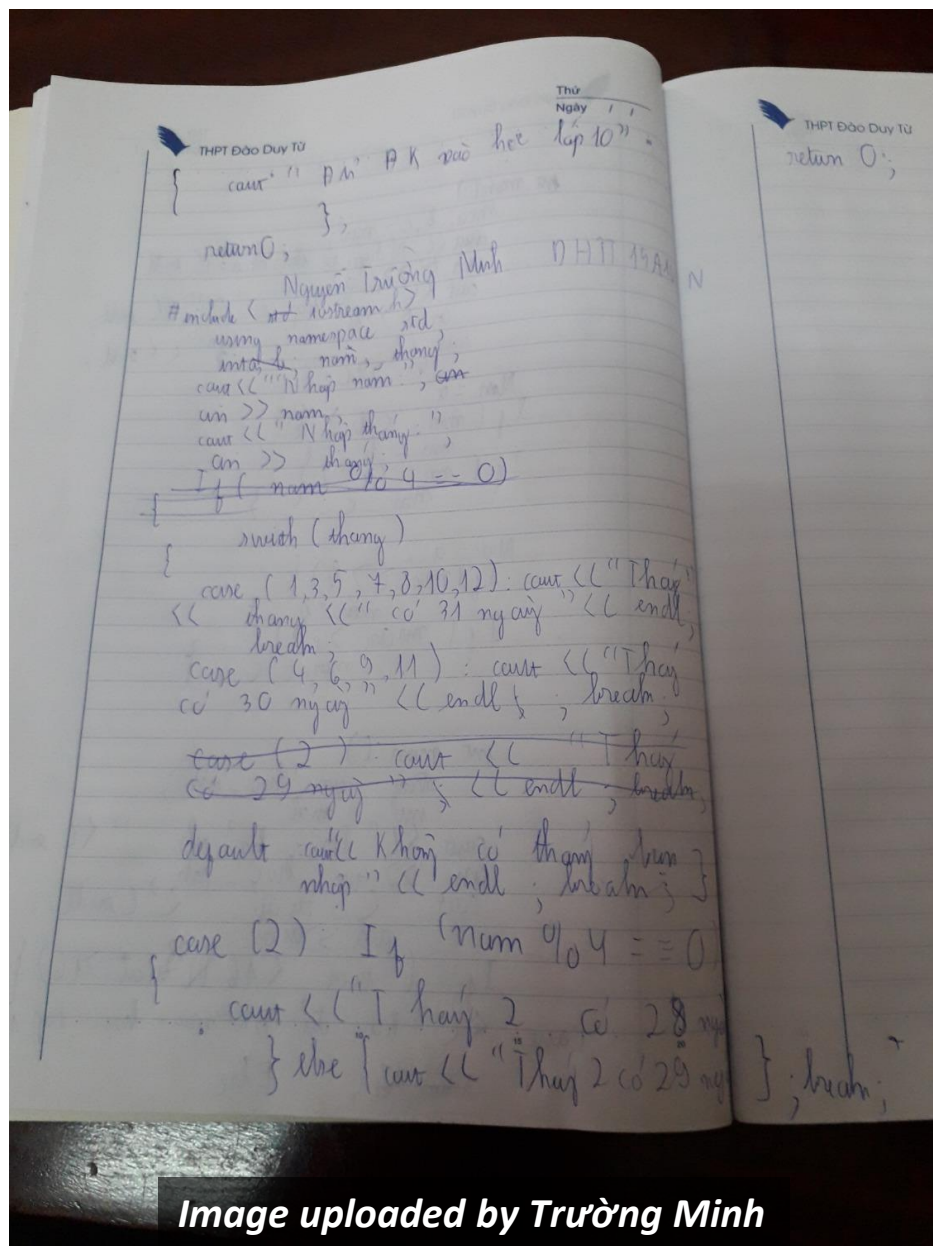 Thứ
Ngày / /
THPT Đào Duy Từ
{ cout " Đủ ĐK vào học lớp 10" .
};
return 0;
Nguyễn Trường Minh DHTI15A1 N
#include < std iostream.h>
using namespace std;
int a, b, nam, thang;
cout << " Nhập nam "; cin
cin >> nam;
cout << " Nhập tháng ";
cin >> thang;
If ( nam % 4 == 0)
{
swich (thang)
{
case ( 1,3,5,7,8,10,12): cout << "Tháng"
<< thang << " có 31 ngày " << endl;
break;
case ( 4, 6, 9, 11) : cout << "Tháng
có 30 ngày " << endl ; break;
case (2) : cout << "Tháng
có 29 ngày " ; << endl ; break;
default cout << Không có tháng bạn }
nhập " << endl ; break;
case (2) If (nam % 4 == 0
{
cout << "Tháng 2 có 28 ngày
} else { cout << "Tháng 2 có 29 } ; break;
THPT Đào Duy Từ
return 0;
Image uploaded by Trường Minh